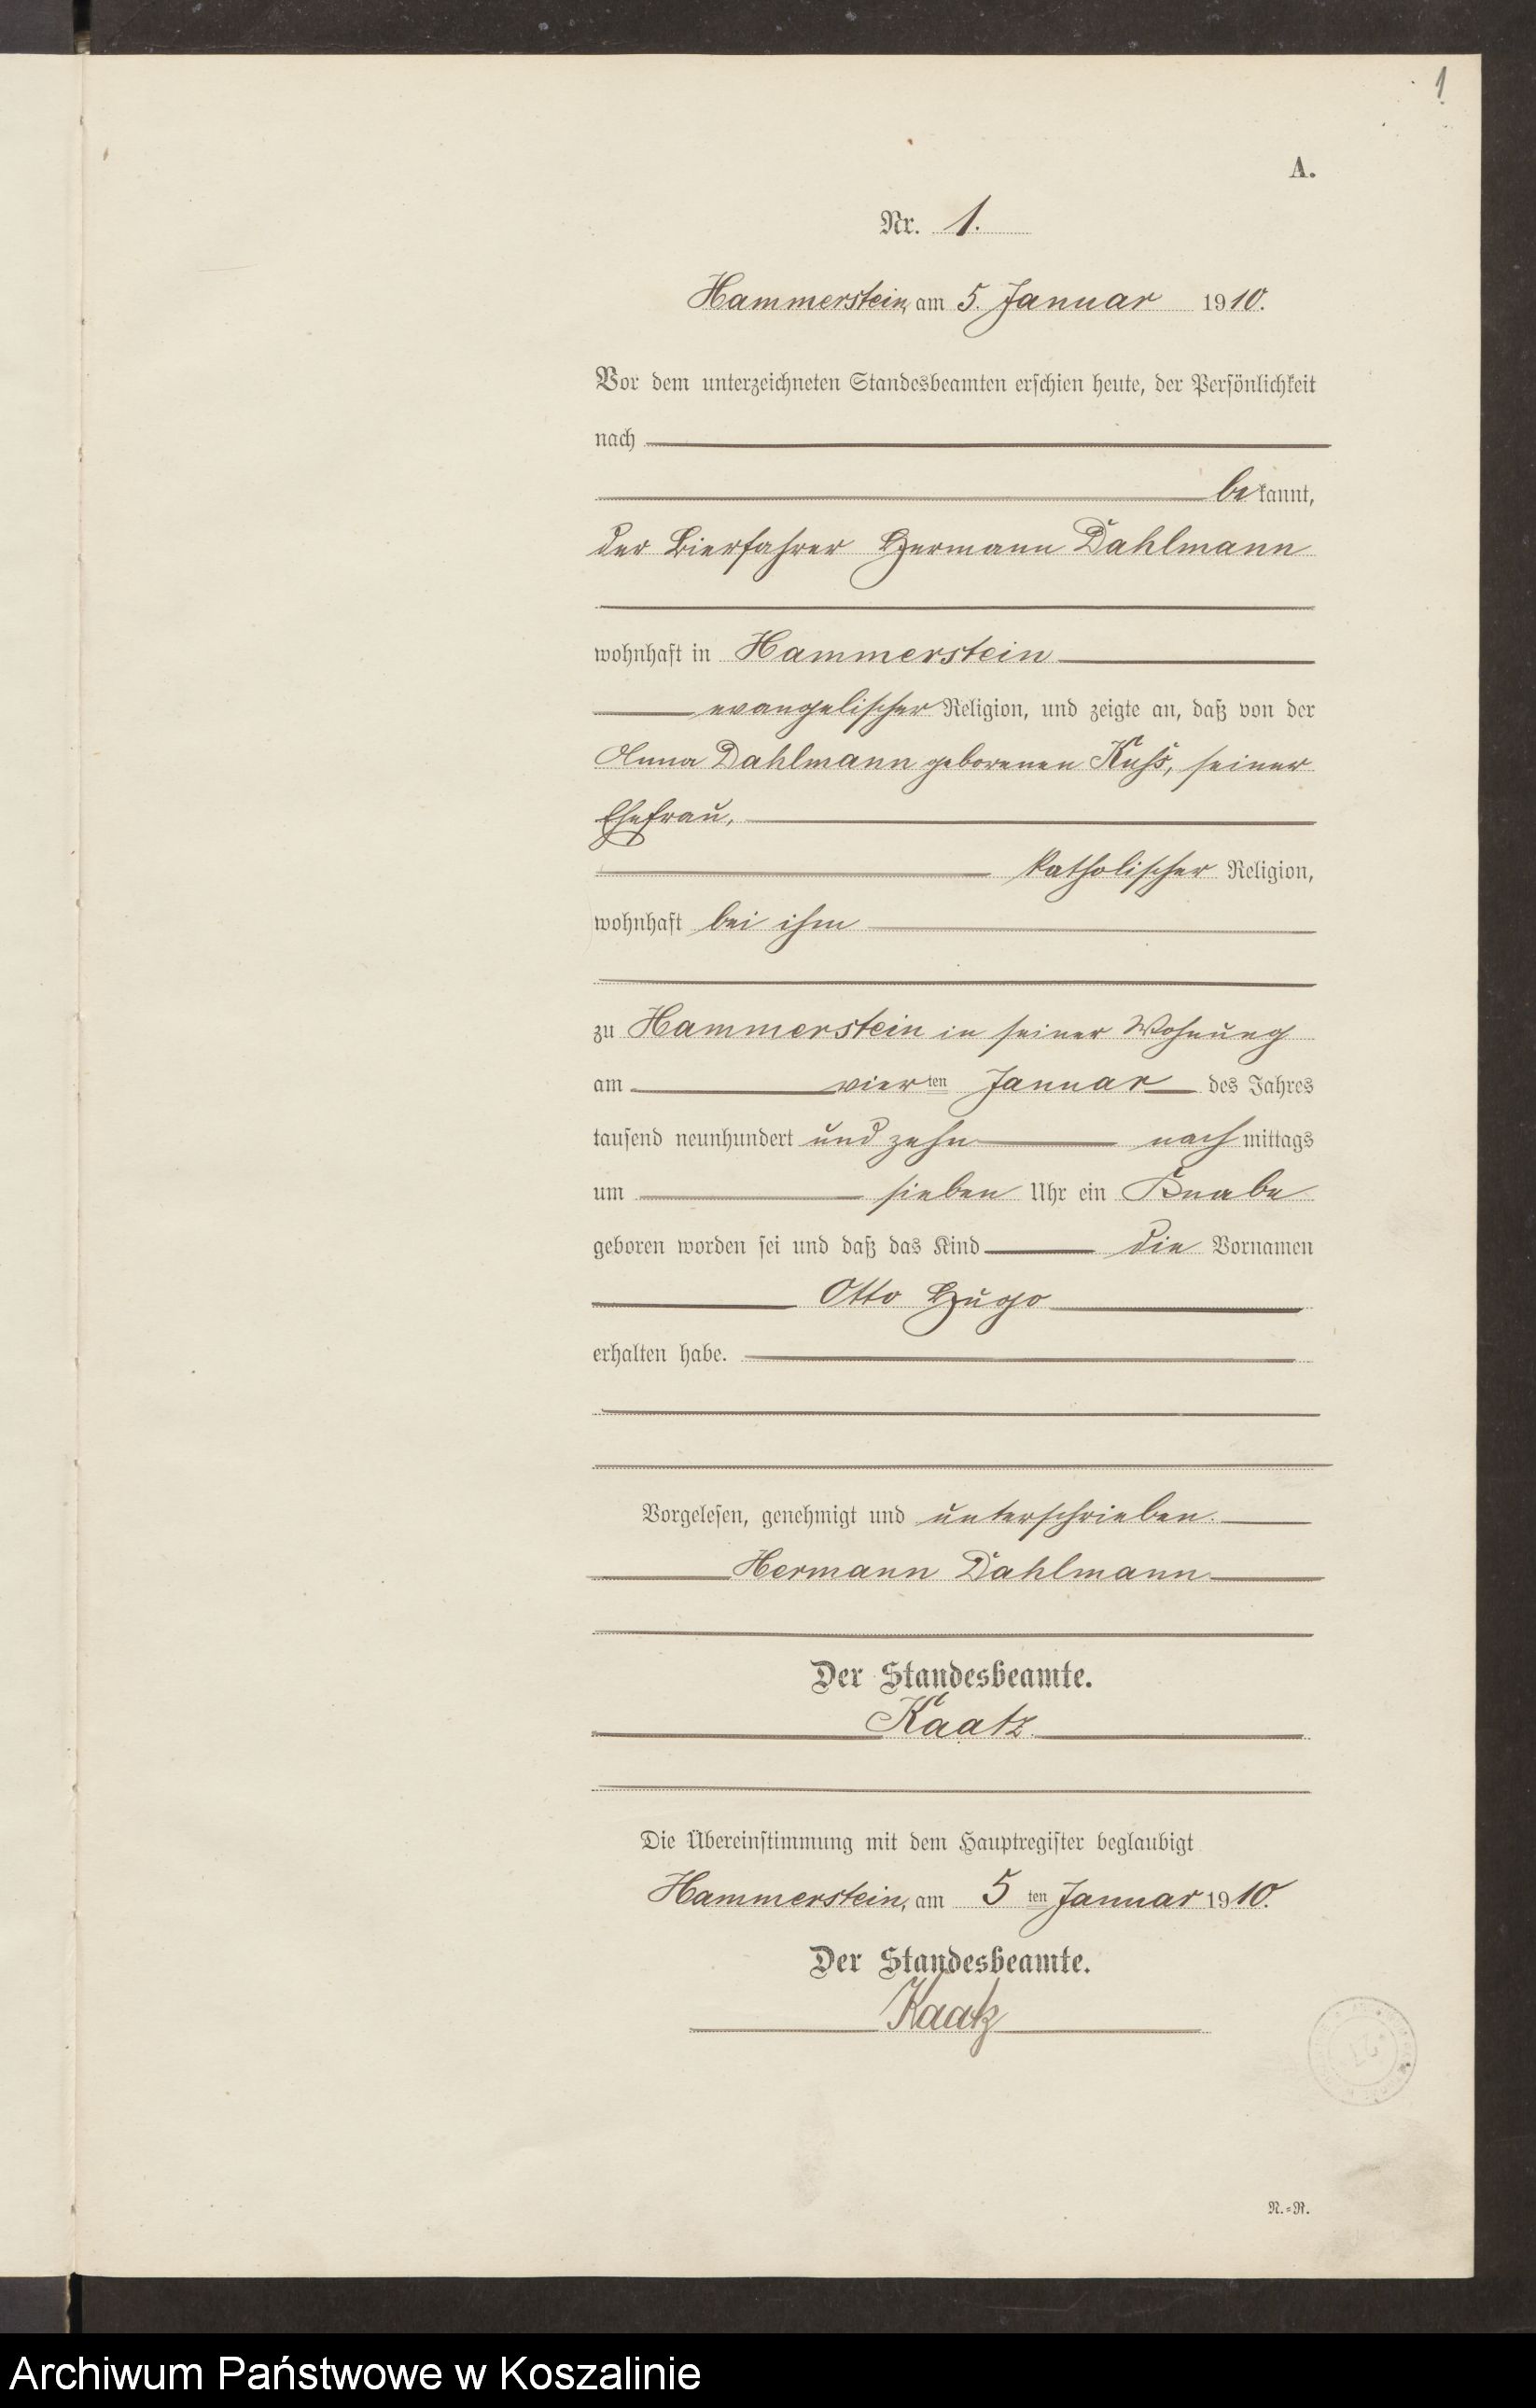 1
A.
Nr. 1.
Hammerstein, am 5. Januar 1910.
Vor dem unterzeichneten Standesbeamten erschien heute, der Persönlichkeit
nach
bekannt,
der Bierfahrer Hermann Dahlmann
wohnhaft in Hammerstein
evangelischer Religion, und zeigte an, daß von der
Anna Dahlmann geborenen Kuhs, seiner
Ehefrau,
katholischer Religion,
wohnhaft bei ihm
zu Hammerstein in seiner Wohnung
am vierten Januar des Jahres
tausend neunhundert und zehn nachmittags
um sieben Uhr ein Knabe
geboren worden sei und daß das Kind die Vornamen
Otto Hugo
erhalten habe.
Vorgelesen, genehmigt und unterschrieben.
Hermann Dahlmann
Der Standesbeamte.
Kaatz.
Die Übereinstimmung mit dem Hauptregister beglaubigt
Hammerstein, am 5ten Januar 1910.
Der Standesbeamte.
Kaatz
N.=R.
Archiwum Państwowe w Koszalinie